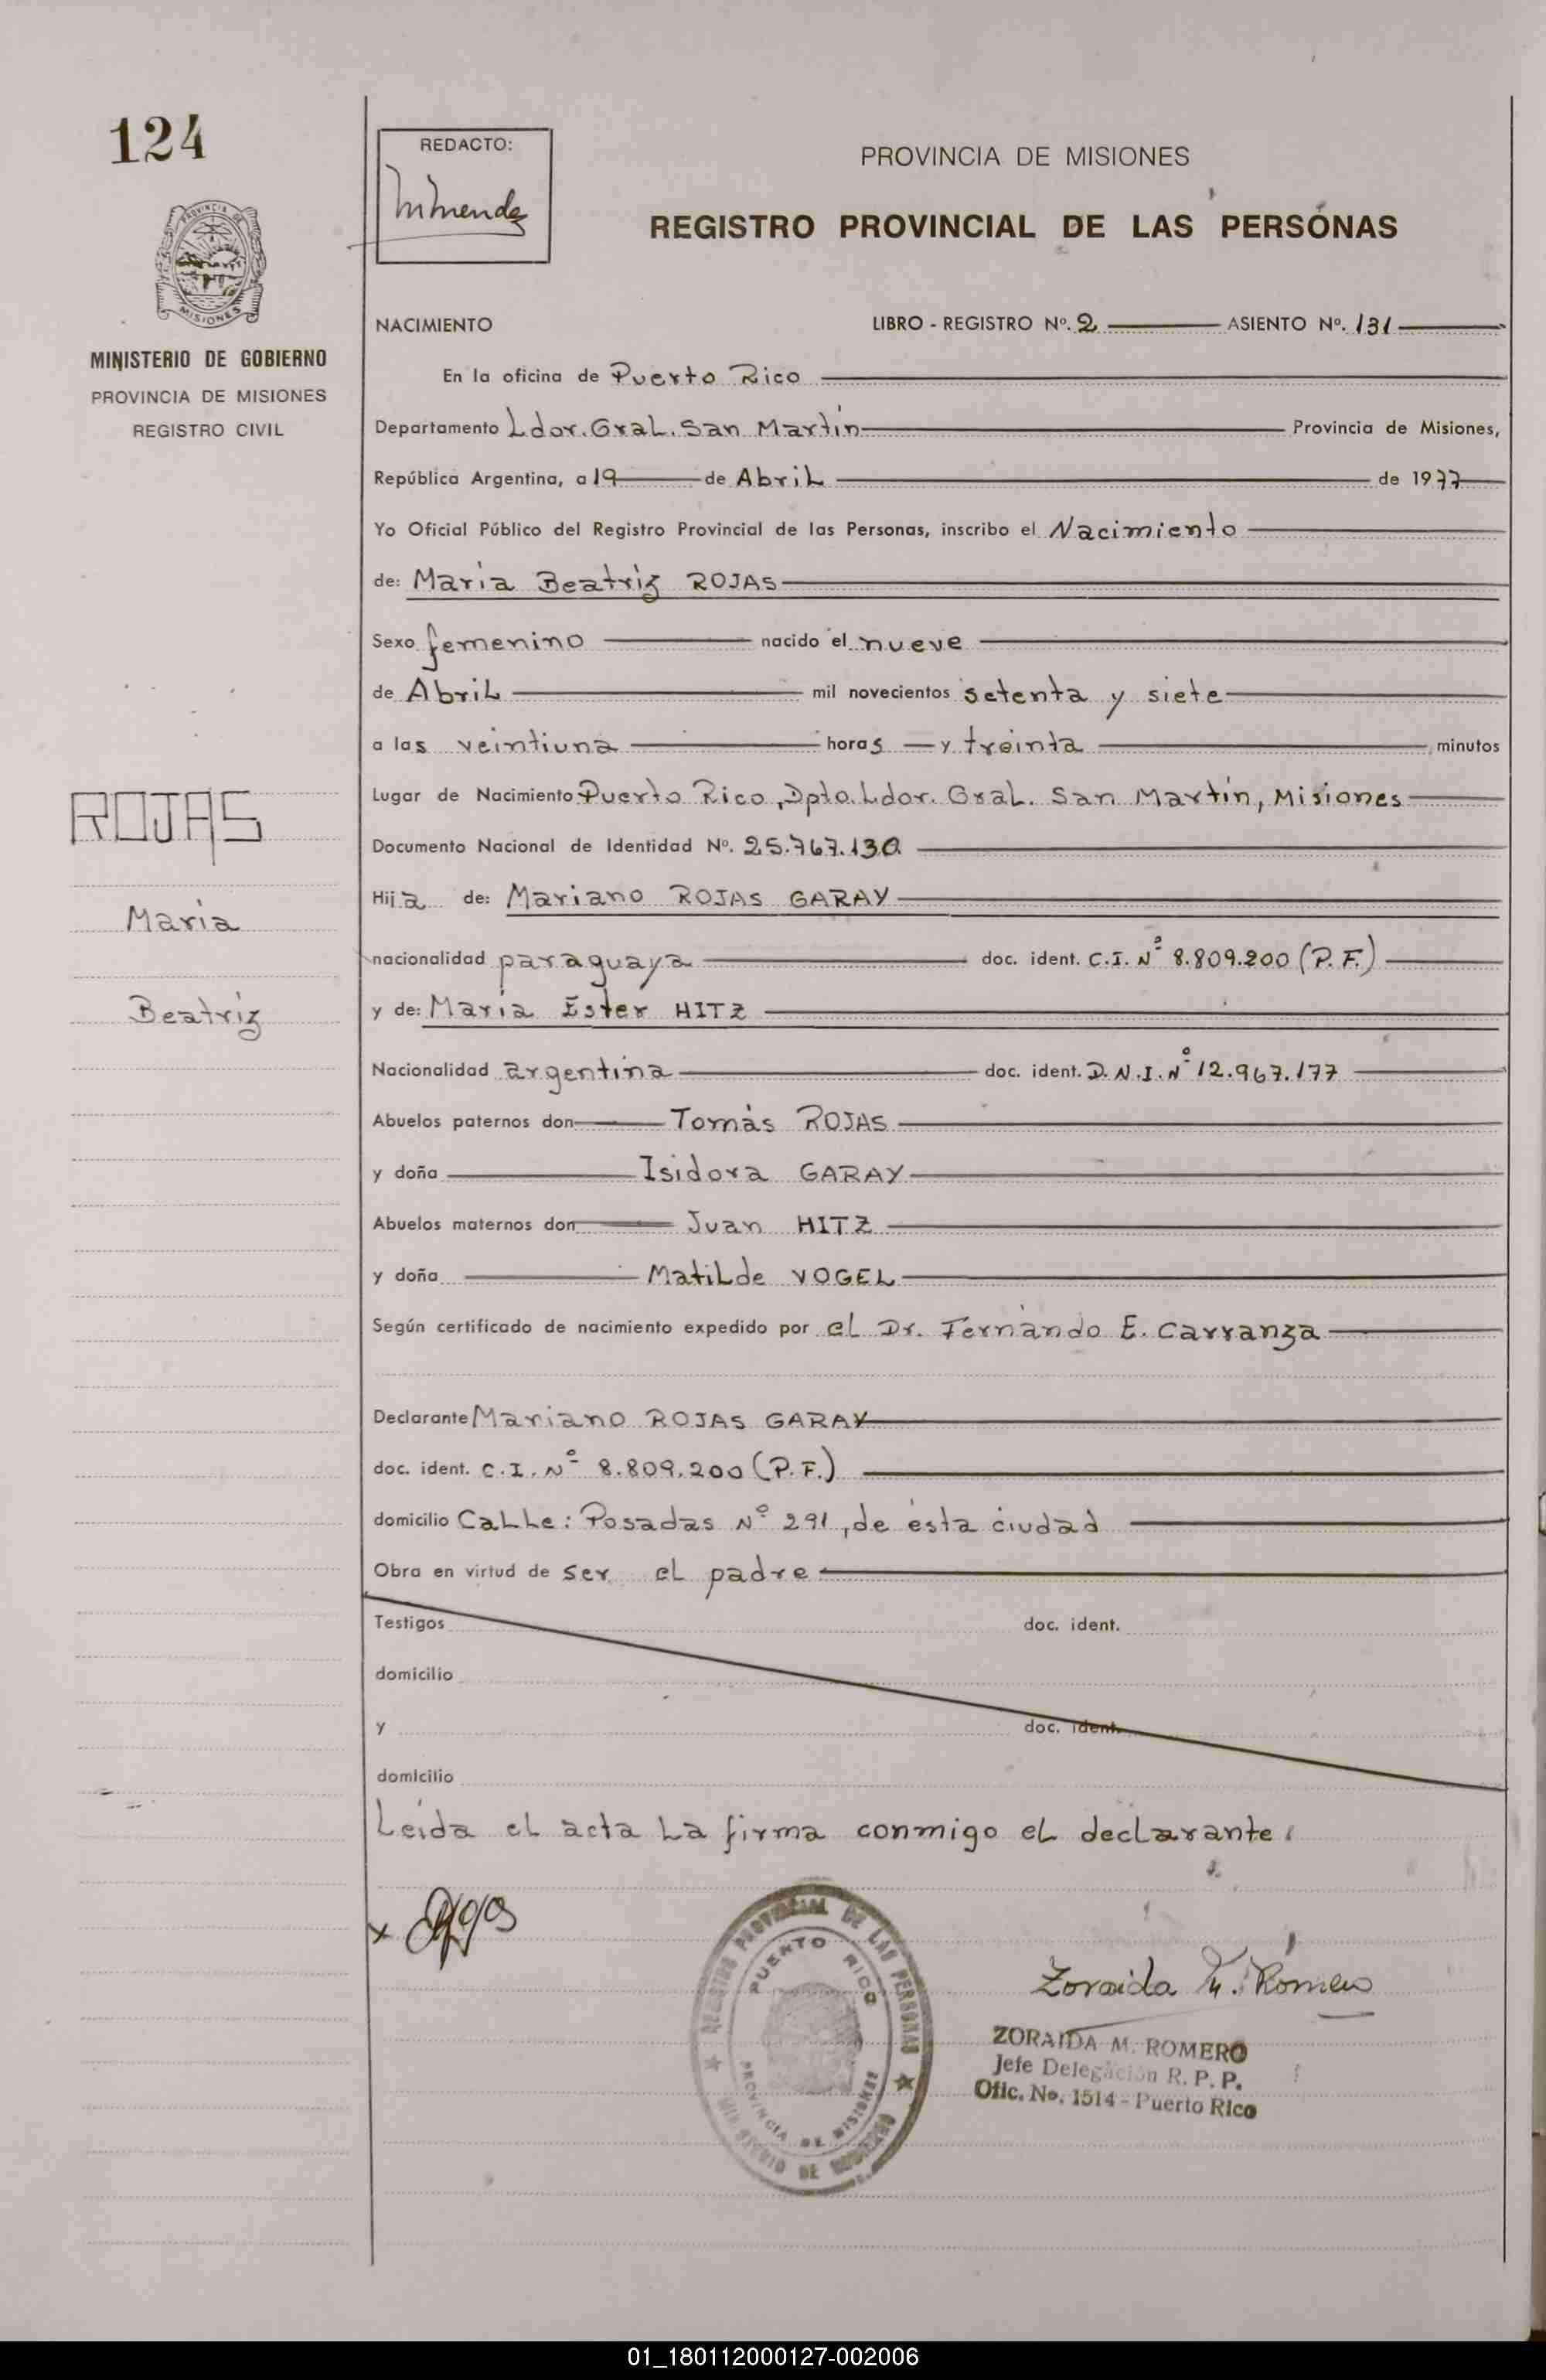 124
REDACTO:
PROVINCIA DE MISIONES
REGISTRO PROVINCIAL DE LAS PERSONAS
PROVINCIA DE
MISIONES
MINISTERIO DE GOBIERNO
PROVINCIA DE MISIONES
REGISTRO CIVIL
NACIMIENTO LIBRO - REGISTRO Nº. 2 ASIENTO Nº. 131
En la oficina de Puerto Rico
Departamento Ldor. Gral. San Martín Provincia de Misiones,
República Argentina, a 19 de Abril de 1977
Yo Oficial Público del Registro Provincial de las Personas, inscribo el Nacimiento
de: María Beatriz ROJAS
Sexo femenino nacido el nueve
de Abril mil novecientos setenta y siete
a las veintiuna horas y treinta minutos
Lugar de Nacimiento Puerto Rico, Dpto. Ldor. Gral. San Martín, Misiones
Documento Nacional de Identidad Nº. 25.767.130
Hija de: Mariano ROJAS GARAY
nacionalidad paraguaya doc. ident. C.I. Nº 8.809.200 (P.F.)
y de: María Ester HITZ
Nacionalidad argentina doc. ident. D.N.I. Nº 12.967.177
Abuelos paternos don Tomás ROJAS
y doña Isidora GARAY
Abuelos maternos don Juan HITZ
y doña Matilde VOGEL
Según certificado de nacimiento expedido por el Dr. Fernando E. Carranza
Declarante Mariano ROJAS GARAY
doc. ident. C.I. Nº 8.809.200 (P.F.)
domicilio Calle: Posadas Nº 291, de ésta ciudad
Obra en virtud de ser el padre
Testigos doc. ident.
domicilio
y doc. ident.
domicilio
Leída el acta la firma conmigo el declarante.
ROJAS
María
Beatriz
x
REGISTRO PROVINCIAL DE LAS PERSONAS
PUERTO RICO
PROVINCIA DE MISIONES
MINISTERIO DE GOBIERNO
Zoraida M. Romero
ZORAIDA M. ROMERO
Jefe Delegación R. P. P.
Ofic. No. 1514 - Puerto Rico
01_180112000127-002006